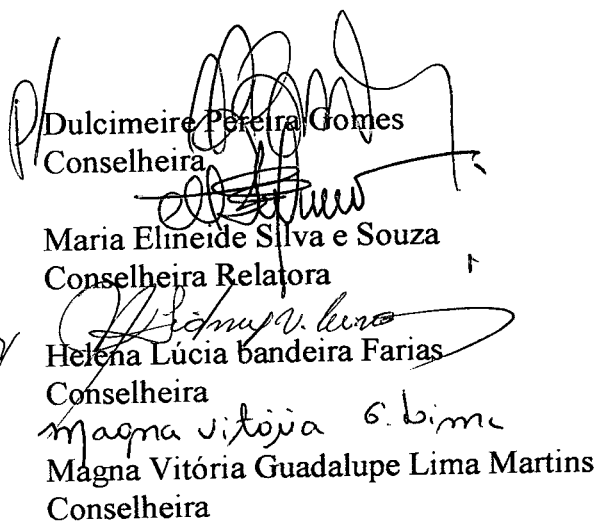 p/
Dulcimeire Pereira Gomes
Conselheira
Maria Elineide Silva e Souza
Conselheira Relatora
Helena Lúcia bandeira Farias
Conselheira
Magna Vitória G. Lima
Magna Vitória Guadalupe Lima Martins
Conselheira